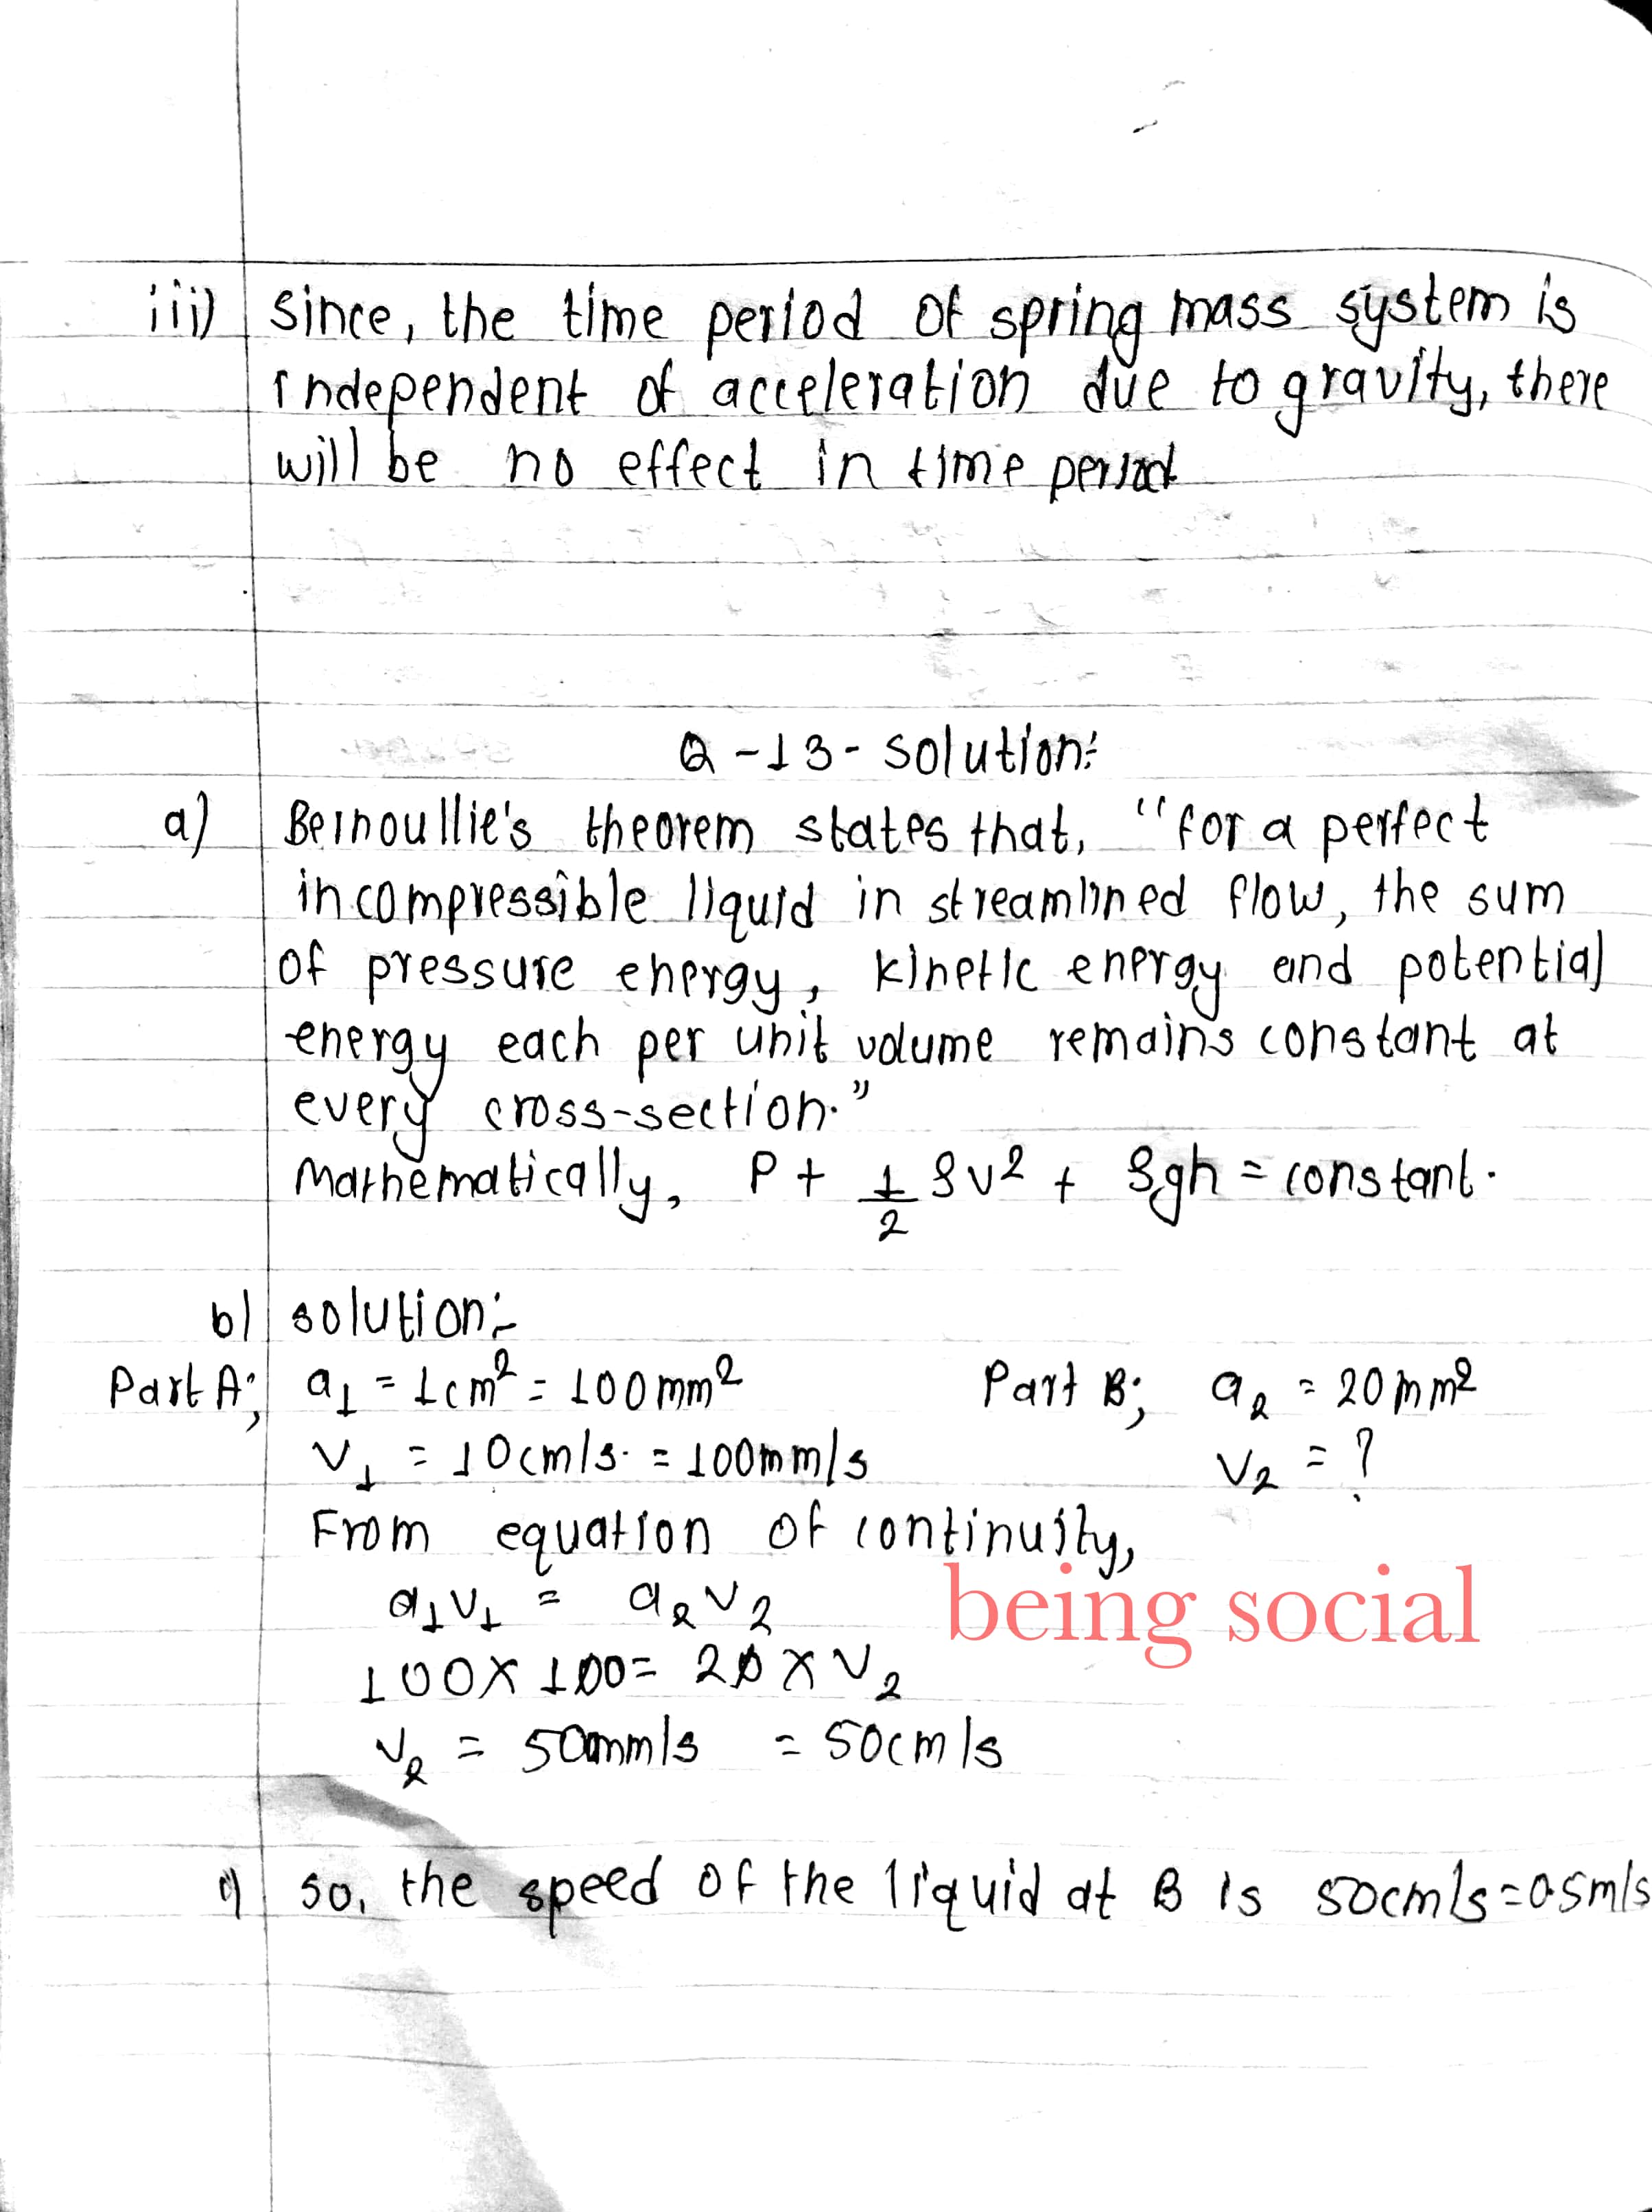 iii) Since, the time period of spring mass system is
independent of acceleration due to gravity, there
will be no effect in time period
Q-13- solution:
a) Bernoullie's theorem states that, "for a perfect
incompressible liquid in streamlined flow, the sum
of pressure energy, kinetic energy and potential
energy each per unit volume remains constant at
every cross-section."
Mathematically, P + 1/2 ρv² + ρgh = constant.
b) solution:-
Part A; a₁ = 1cm² = 100mm² Part B; a₂ = 20mm²
v₁ = 10cm/s. = 100mm/s v₂ = ?
From equation of continuity,
a₁v₁ = a₂v₂
being social
100 x 100 = 20 x v₂
v₂ = 500mm/s = 50cm/s
so, the speed of the liquid at B is 50cm/s = 0.5m/s